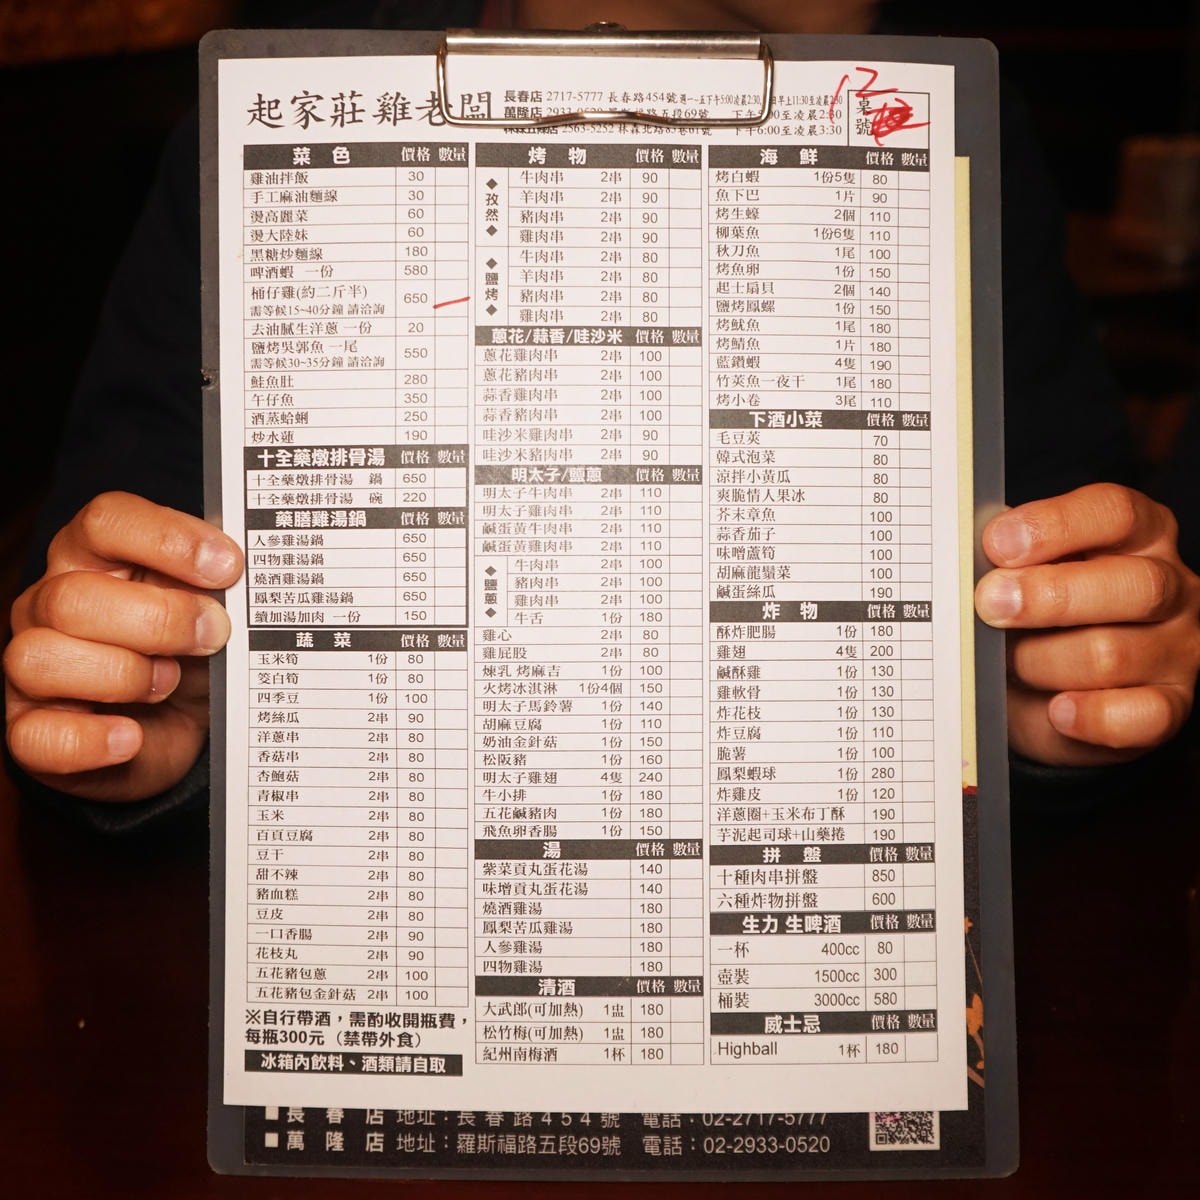 起家莊雞老闆
長春店 2717-5777 長春路454號 週一~五下午5:00凌晨2:30,
萬隆店 五段69號 下午5:00至凌晨2:30
2563-5252 林森北路85巷61號 下午6:00至凌晨3:30
桌號
12
菜 色 價格 數量
雞油拌飯 30
手工麻油麵線 30
燙高麗菜 60
燙大陸妹 60
黑糖炒麵線 180
啤酒蝦 一份 580
桶仔雞(約二斤半) 650
需等候15~40分鐘 請洽詢
去油膩生洋蔥 一份 20
鹽烤吳郭魚 一尾 550
需等候30~35分鐘 請洽詢
鮭魚肚 280
午仔魚 350
酒蒸蛤蜊 250
炒水蓮 190
十全藥燉排骨湯 價格 數量
十全藥燉排骨湯 鍋 650
十全藥燉排骨湯 碗 220
藥膳雞湯鍋 價格 數量
人參雞湯鍋 650
四物雞湯鍋 650
燒酒雞湯鍋 650
鳳梨苦瓜雞湯鍋 650
續加湯加肉 一份 150
蔬 菜 價格 數量
玉米筍 1份 80
筊白筍 1份 80
四季豆 1份 100
烤絲瓜 2串 90
洋蔥串 2串 80
香菇串 2串 80
杏鮑菇 2串 80
青椒串 2串 80
玉米 2串 80
百頁豆腐 2串 80
豆干 2串 80
甜不辣 2串 80
豬血糕 2串 80
豆皮 2串 80
一口香腸 2串 90
花枝丸 2串 90
五花豬包蔥 2串 100
五花豬包金針菇 2串 100
※自行帶酒，需酌收開瓶費，
每瓶300元（禁帶外食）
冰箱內飲料、酒類請自取
烤 物 價格 數量
◆孜然◆
牛肉串 2串 90
羊肉串 2串 90
豬肉串 2串 90
雞肉串 2串 90
◆鹽烤◆
牛肉串 2串 80
羊肉串 2串 80
豬肉串 2串 80
雞肉串 2串 80
蔥花/蒜香/哇沙米 價格 數量
蔥花雞肉串 2串 100
蔥花豬肉串 2串 100
蒜香雞肉串 2串 100
蒜香豬肉串 2串 100
哇沙米雞肉串 2串 90
哇沙米豬肉串 2串 90
明太子/鹽蔥 價格 數量
明太子牛肉串 2串 110
明太子雞肉串 2串 110
鹹蛋黃牛肉串 2串 110
鹹蛋黃雞肉串 2串 110
◆鹽蔥◆
牛肉串 2串 100
豬肉串 2串 100
雞肉串 2串 100
牛舌 1份 180
雞心 2串 80
雞屁股 2串 80
煉乳 烤麻吉 1份 100
火烤冰淇淋 1份4個 150
明太子馬鈴薯 1份 140
胡麻豆腐 1份 110
奶油金針菇 1份 150
松阪豬 1份 160
明太子雞翅 4隻 240
牛小排 1份 180
五花鹹豬肉 1份 180
飛魚卵香腸 1份 150
湯 價格 數量
紫菜貢丸蛋花湯 140
味增貢丸蛋花湯 140
燒酒雞湯 180
鳳梨苦瓜雞湯 180
人參雞湯 180
四物雞湯 180
清酒 價格 數量
大武郎(可加熱) 1盅 180
松竹梅(可加熱) 1盅 180
紀州南梅酒 1杯 180
海 鮮 價格 數量
烤白蝦 1份5隻 80
魚下巴 1片 90
烤生蠔 2個 110
柳葉魚 1份6隻 110
秋刀魚 1尾 100
烤魚卵 1份 150
起士扇貝 2個 140
鹽烤鳳螺 1份 150
烤魷魚 1尾 180
烤鯖魚 1片 180
藍鑽蝦 4隻 190
竹莢魚一夜干 1尾 180
烤小卷 3尾 110
下酒小菜 價格 數量
毛豆莢 70
韓式泡菜 80
涼拌小黃瓜 80
爽脆情人果冰 80
芥末章魚 100
蒜香茄子 100
味噌蘆筍 100
胡麻龍鬚菜 100
鹹蛋絲瓜 190
炸 物 價格 數量
酥炸肥腸 1份 180
雞翅 4隻 200
鹹酥雞 1份 130
雞軟骨 1份 130
炸花枝 1份 130
炸豆腐 1份 110
脆薯 1份 100
鳳梨蝦球 1份 280
炸雞皮 1份 120
洋蔥圈+玉米布丁酥 190
芋泥起司球+山藥捲 190
拼 盤 價格 數量
十種肉串拼盤 850
六種炸物拼盤 600
生力 生啤酒 價格 數量
一杯 400cc 80
壺裝 1500cc 300
桶裝 3000cc 580
威士忌 價格 數量
Highball 1杯 180
■ 長 春 店 地址：長春路454號 電話：02-2717-5777
■ 萬 隆 店 地址：羅斯福路五段69號 電話：02-2933-0520